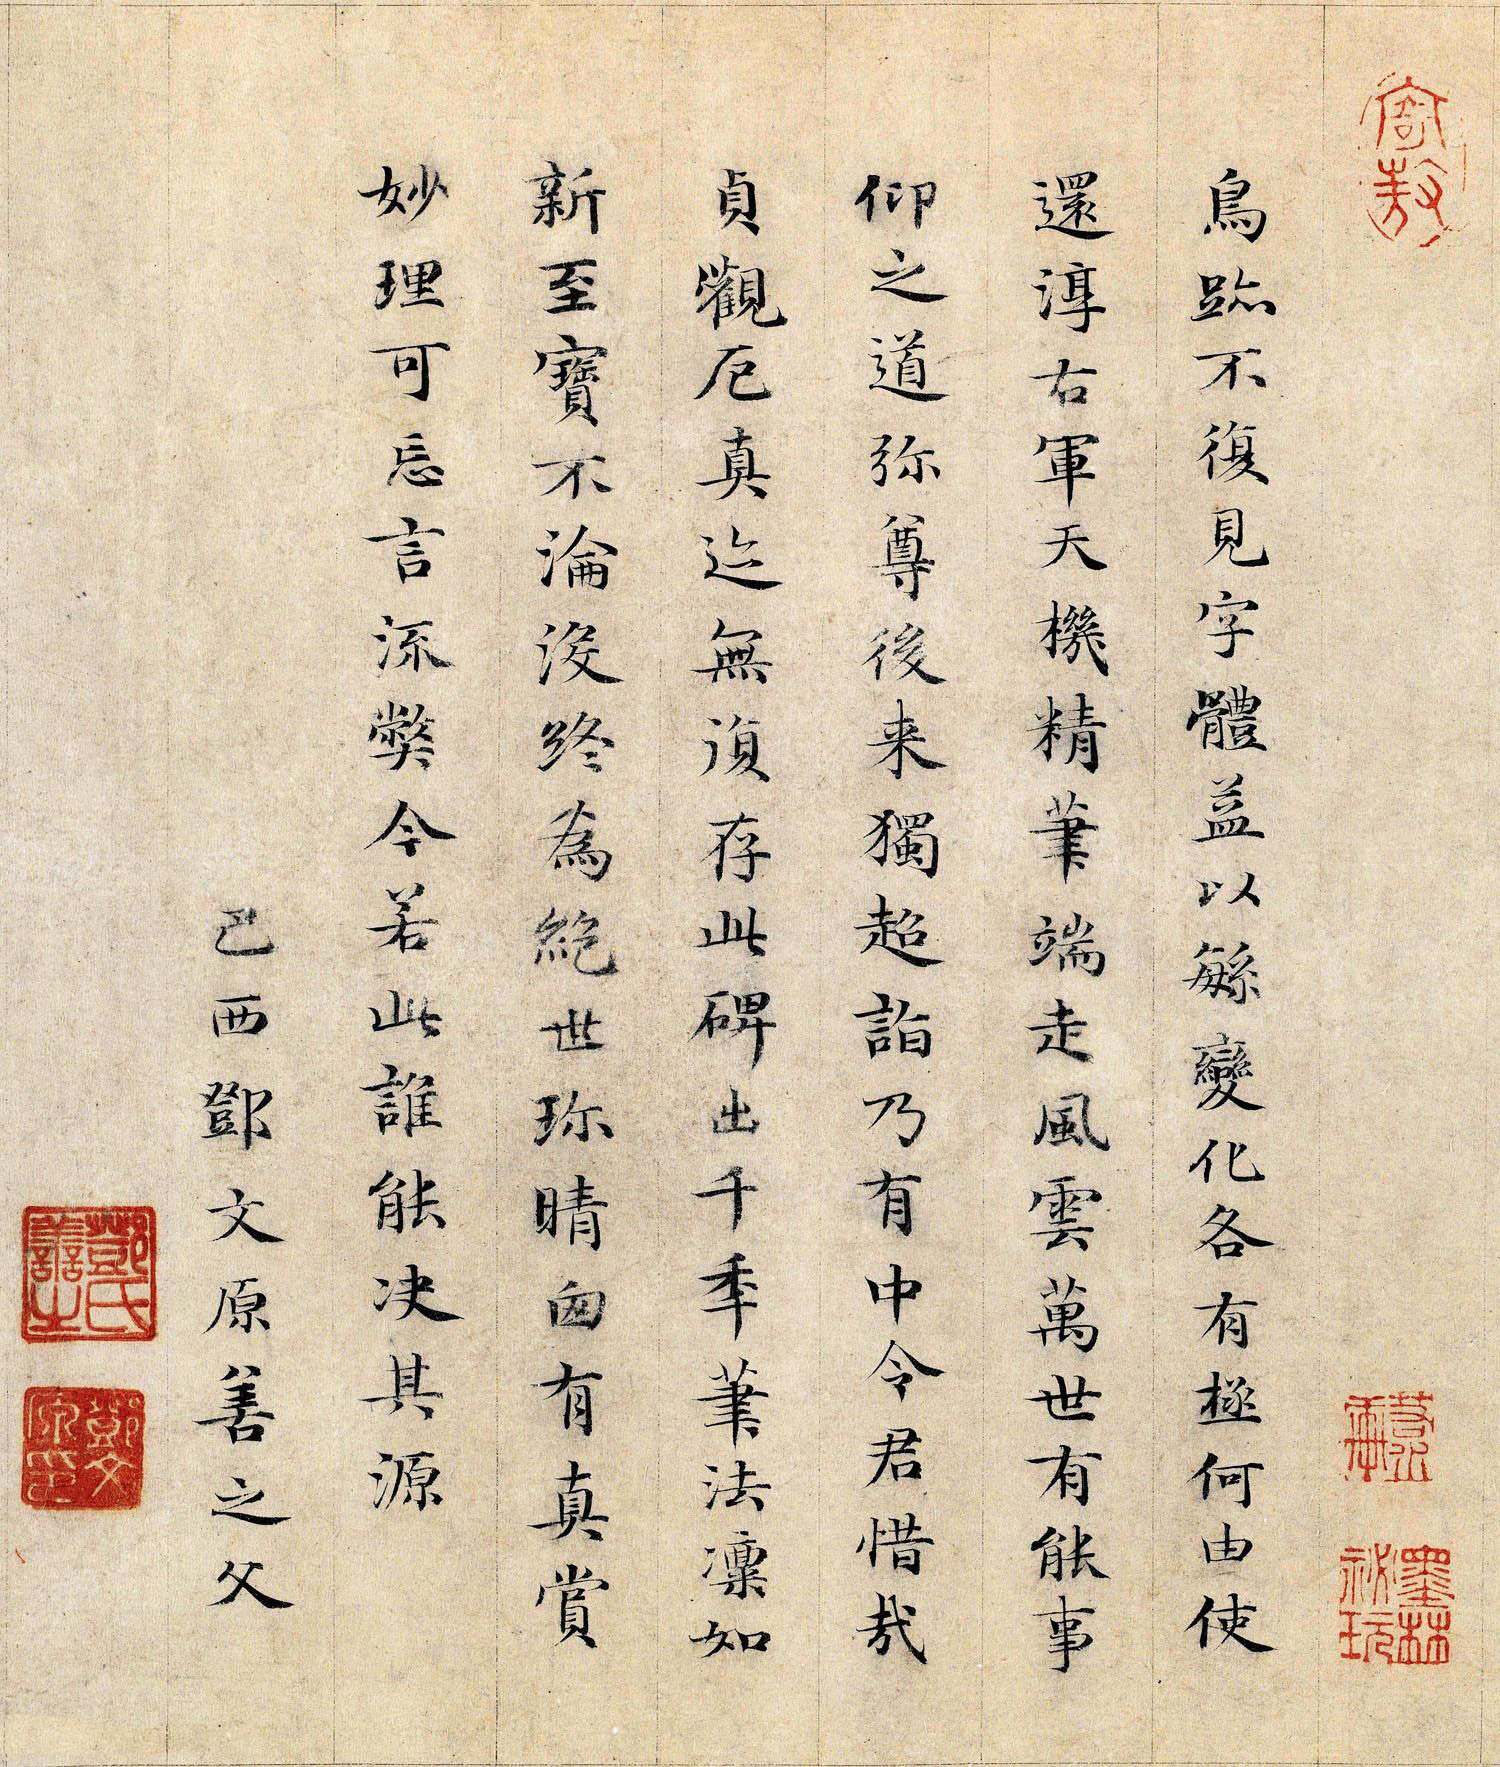 鳥跡不復見字體益以繇變化各有極何由使
還淳右軍天機精筆端走風雲萬世有能事
仰之道弥尊後来獨超詣乃有中令君惜哉
貞觀厄真迹無湏存此碑出千年筆法凛如
新至寶不淪没終為絶世珎晴囱有真賞
妙理可忘言流弊今若此誰能决其源
己酉鄧文原善之父
鄧氏善之
鄧文原印
墨林祕玩